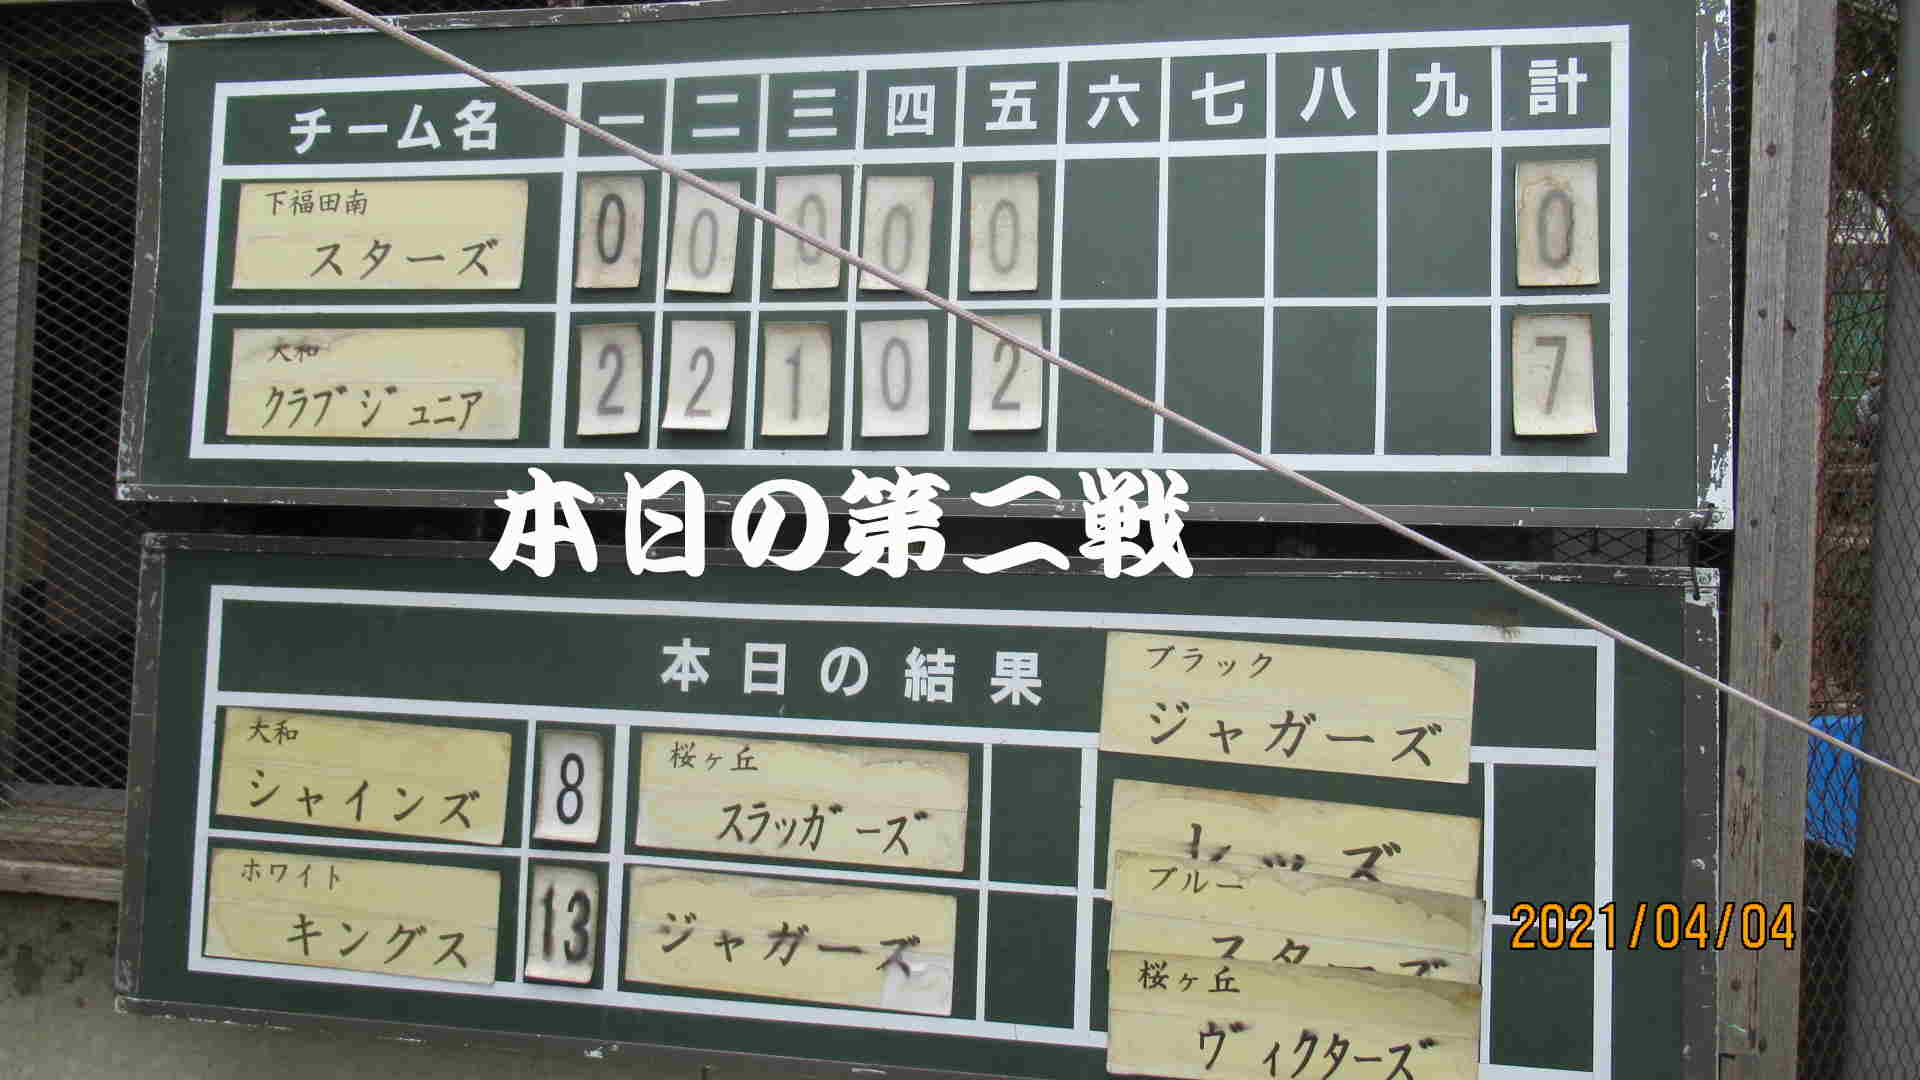 チーム名 一 二 三 四 五 六 七 八 九 計
下福田南
スターズ 0 0 0 0 0 0
大和
クラブジュニア 2 2 1 0 2 7
本日の第二戦
本日の結果
ブラック
ジャガーズ
大和
シャインズ 8
桜ヶ丘
スラッガーズ
レッズ
ホワイト
キングス 13
ジャガーズ
ブルー
スターズ
桜ヶ丘
ヴィクターズ
2021/04/04